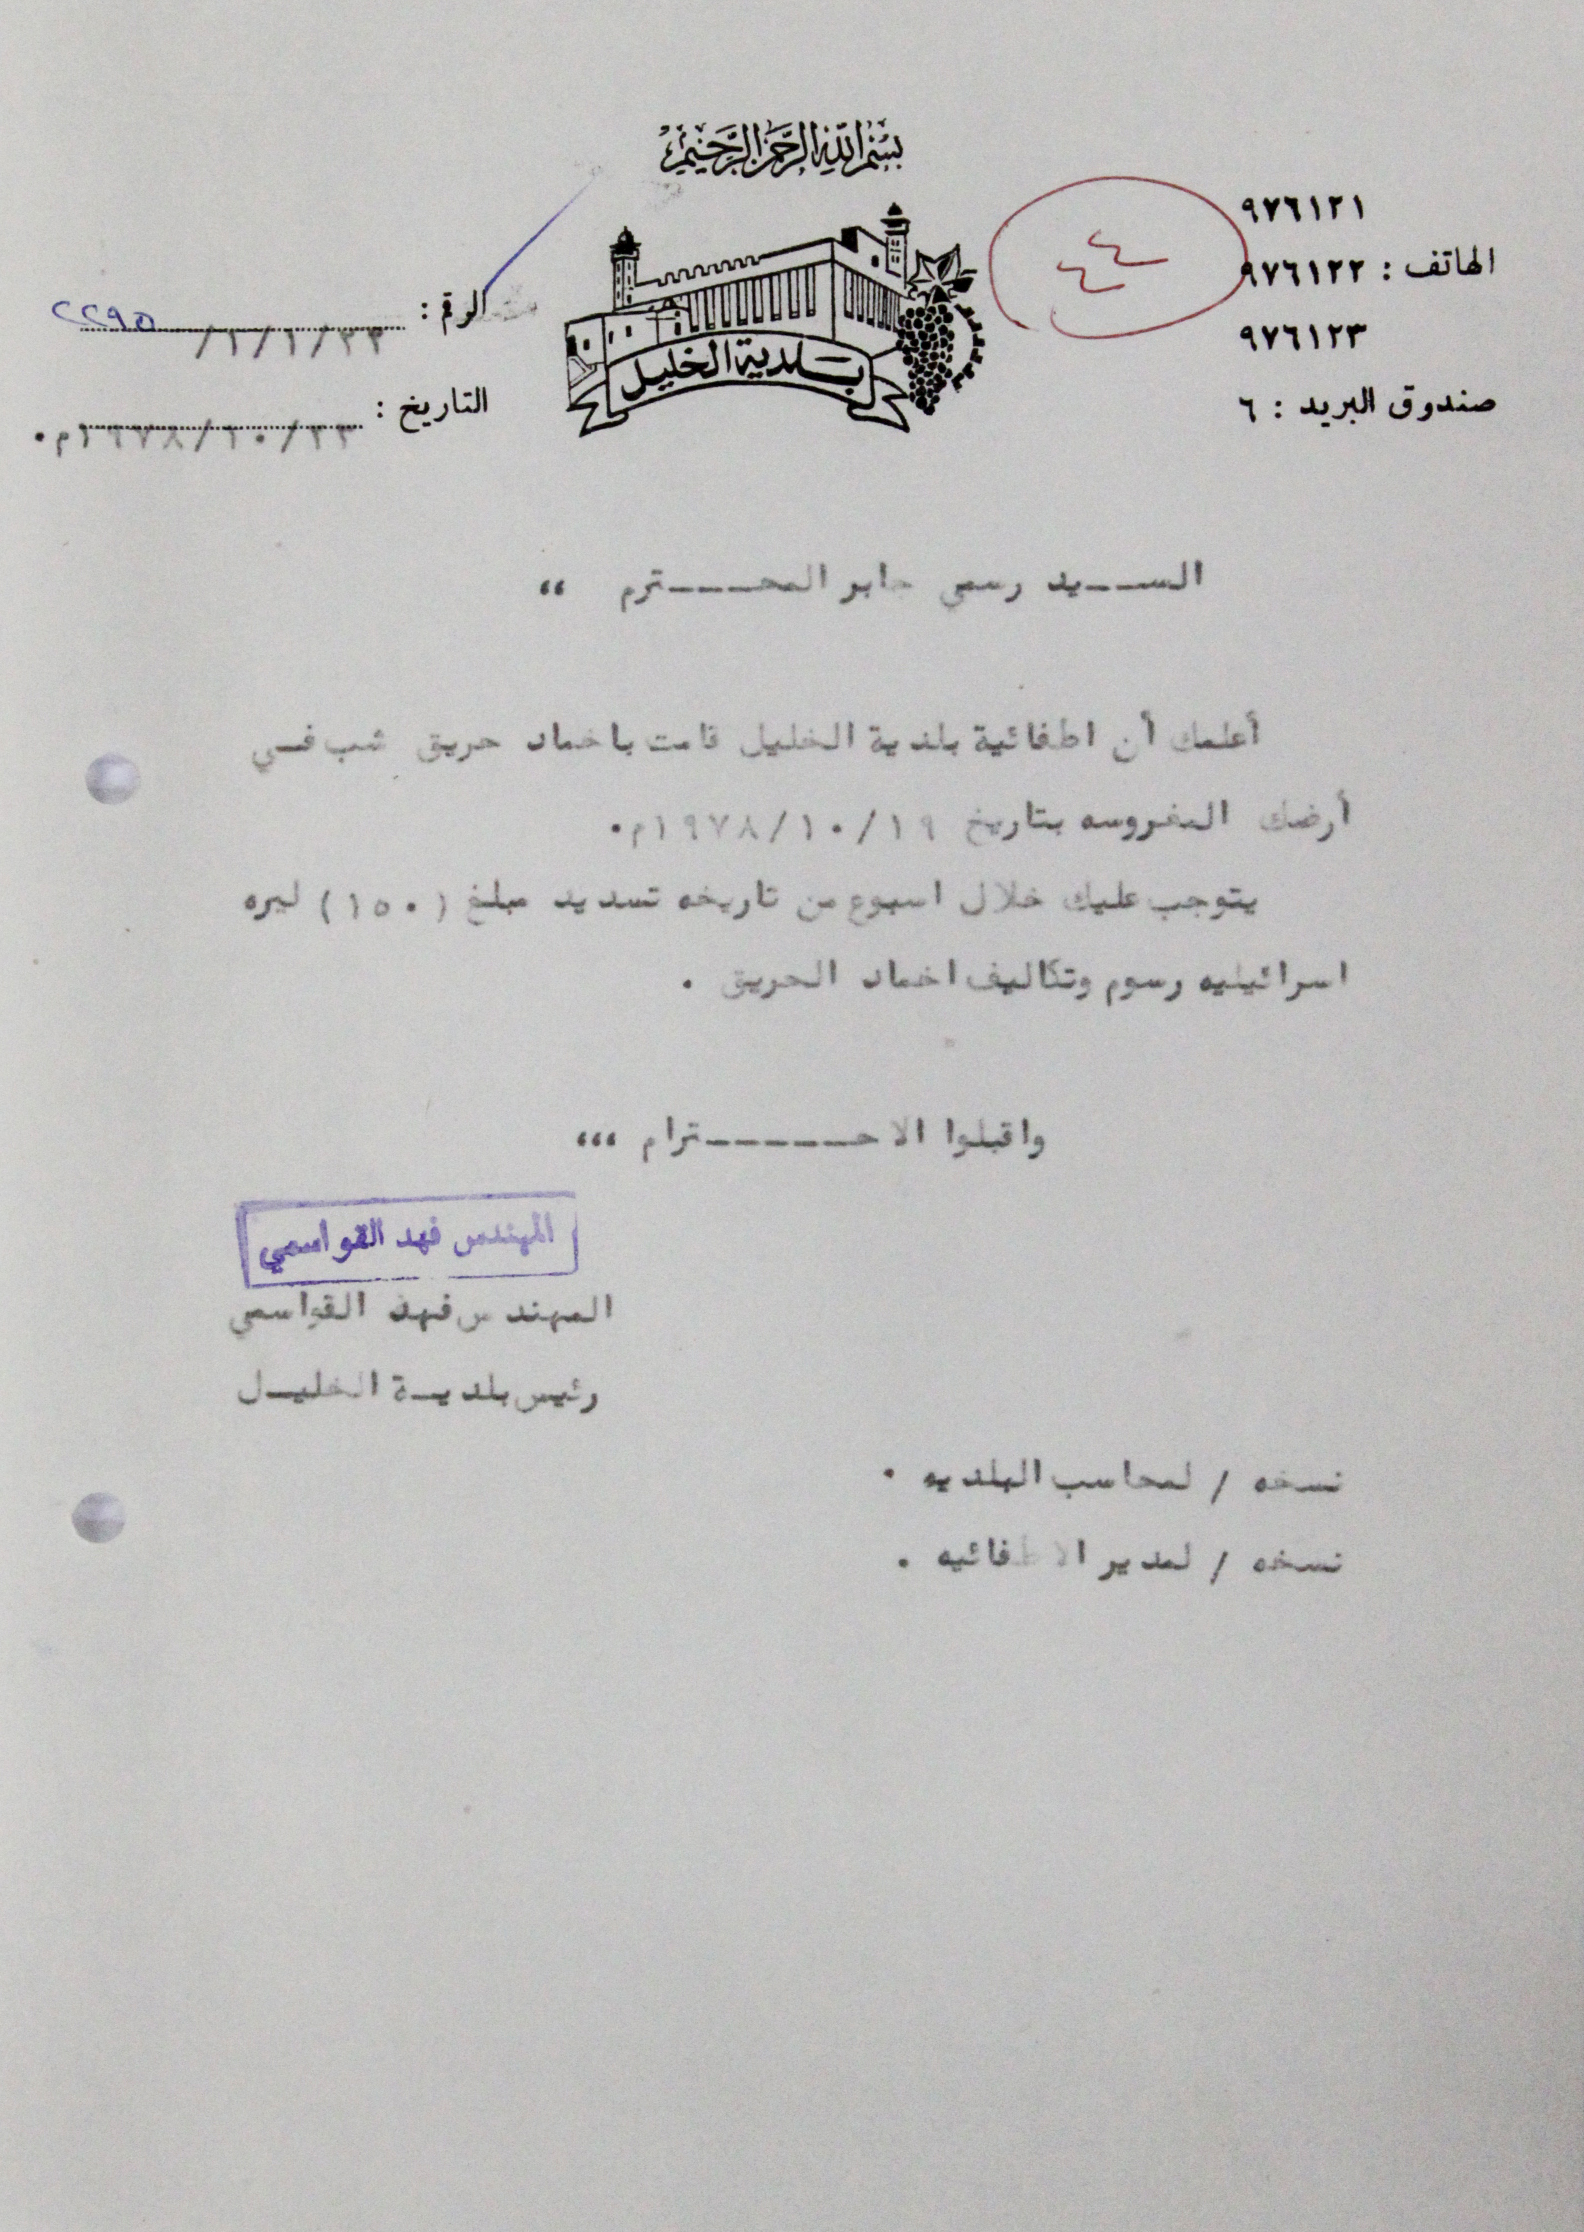 بسم الله الرحمن الرحيم
٩٧٦١٢١
الهاتف : ٩٧٦١٢٢
٩٧٦١٢٣
صندوق البريد : ٦
٤٤
بلدية الخليل
الرقم : ٢٣/١/١/ ٢٢٩٥
التاريخ : ٢٣/١٠/١٩٧٨م.
الســـيد رسمي جابر المحــــترم ،،
أعلمك أن اطفائية بلدية الخليل قامت باخماد حريق شب فــي
أرضك المغروسه بتاريخ ١٩/١٠/١٩٧٨م.
يتوجب عليك خلال اسبوع من تاريخه تسديد مبلغ (١٥٠) ليره
اسرائيليه رسوم وتكاليف اخماد الحريق .
واقبلوا الاحــــــترام ،،،
المهندس فهد القواسمي
المهندس فهد القواسمي
رئيس بلديــة الخليــل
نسخه / لمحاسب البلديه .
نسخه / لمدير الاطفائيه .